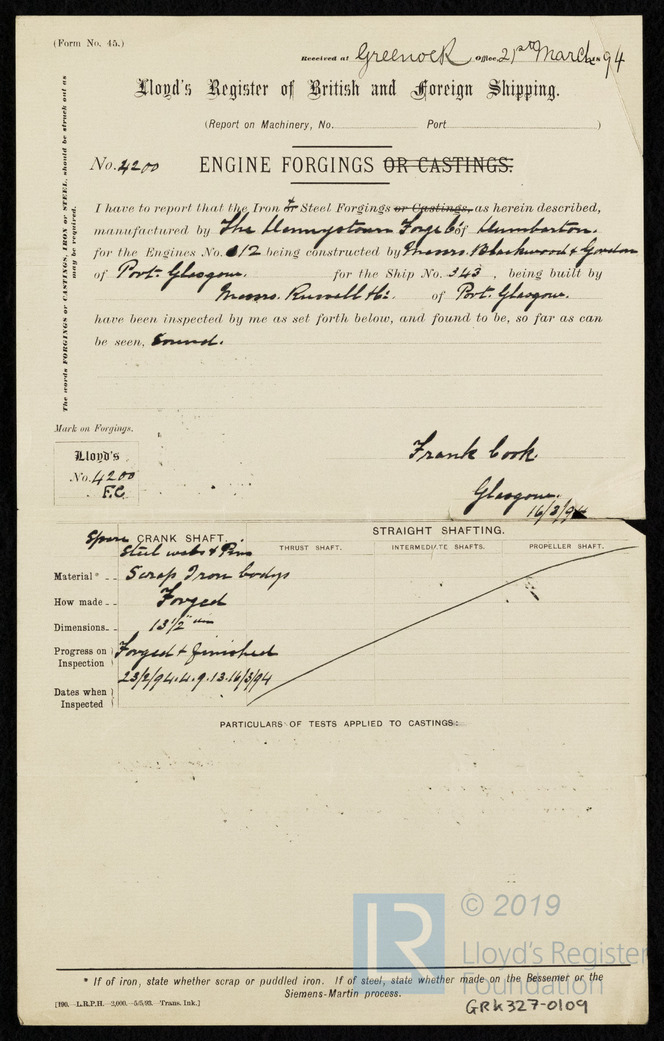 (Form No. 45.)
Received at Greenock Office 21st March 1894
Lloyd's Register of British and Foreign Shipping.
(Report on Machinery, No. Port )
The words FORGINGS or CASTINGS, IRON or STEEL, should be struck out as may be required.
No. 4200 ENGINE FORGINGS OR CASTINGS.
I have to report that the Iron & Steel Forgings or Castings, as herein described,
manufactured by The Dennystown Forge Co of Dumbarton.
for the Engines No. 12 being constructed by Messrs. Blackwood & Gordon
of Port Glasgow. for the Ship No. 343, being built by
Messrs. Russell & Co. of Port Glasgow.
have been inspected by me as set forth below, and found to be, so far as can
be seen, Sound.
Mark on Forgings.
Lloyd's
No. 4200
F.C.
Frank Cook.
Glasgow.
16/3/94
Spare CRANK SHAFT. STRAIGHT SHAFTING.
Steel webs & Pins THRUST SHAFT. INTERMEDIATE SHAFTS. PROPELLER SHAFT.
Material* Scrap Iron bodys
How made Forged
Dimensions 13 1/2" dia
Progress on Inspection Forged & finished
Dates when Inspected 23/2/94. 4. 9. 13. 16/3/94
PARTICULARS OF TESTS APPLIED TO CASTINGS:
LR © 2019
Lloyd's Register
Foundation
* If of iron, state whether scrap or puddled iron. If of steel, state whether made on the Bessemer or the
Siemens-Martin process.
[190. L.R.P.H. 2,000. 5/5/93. Trans. Ink.]
GRK327-0109